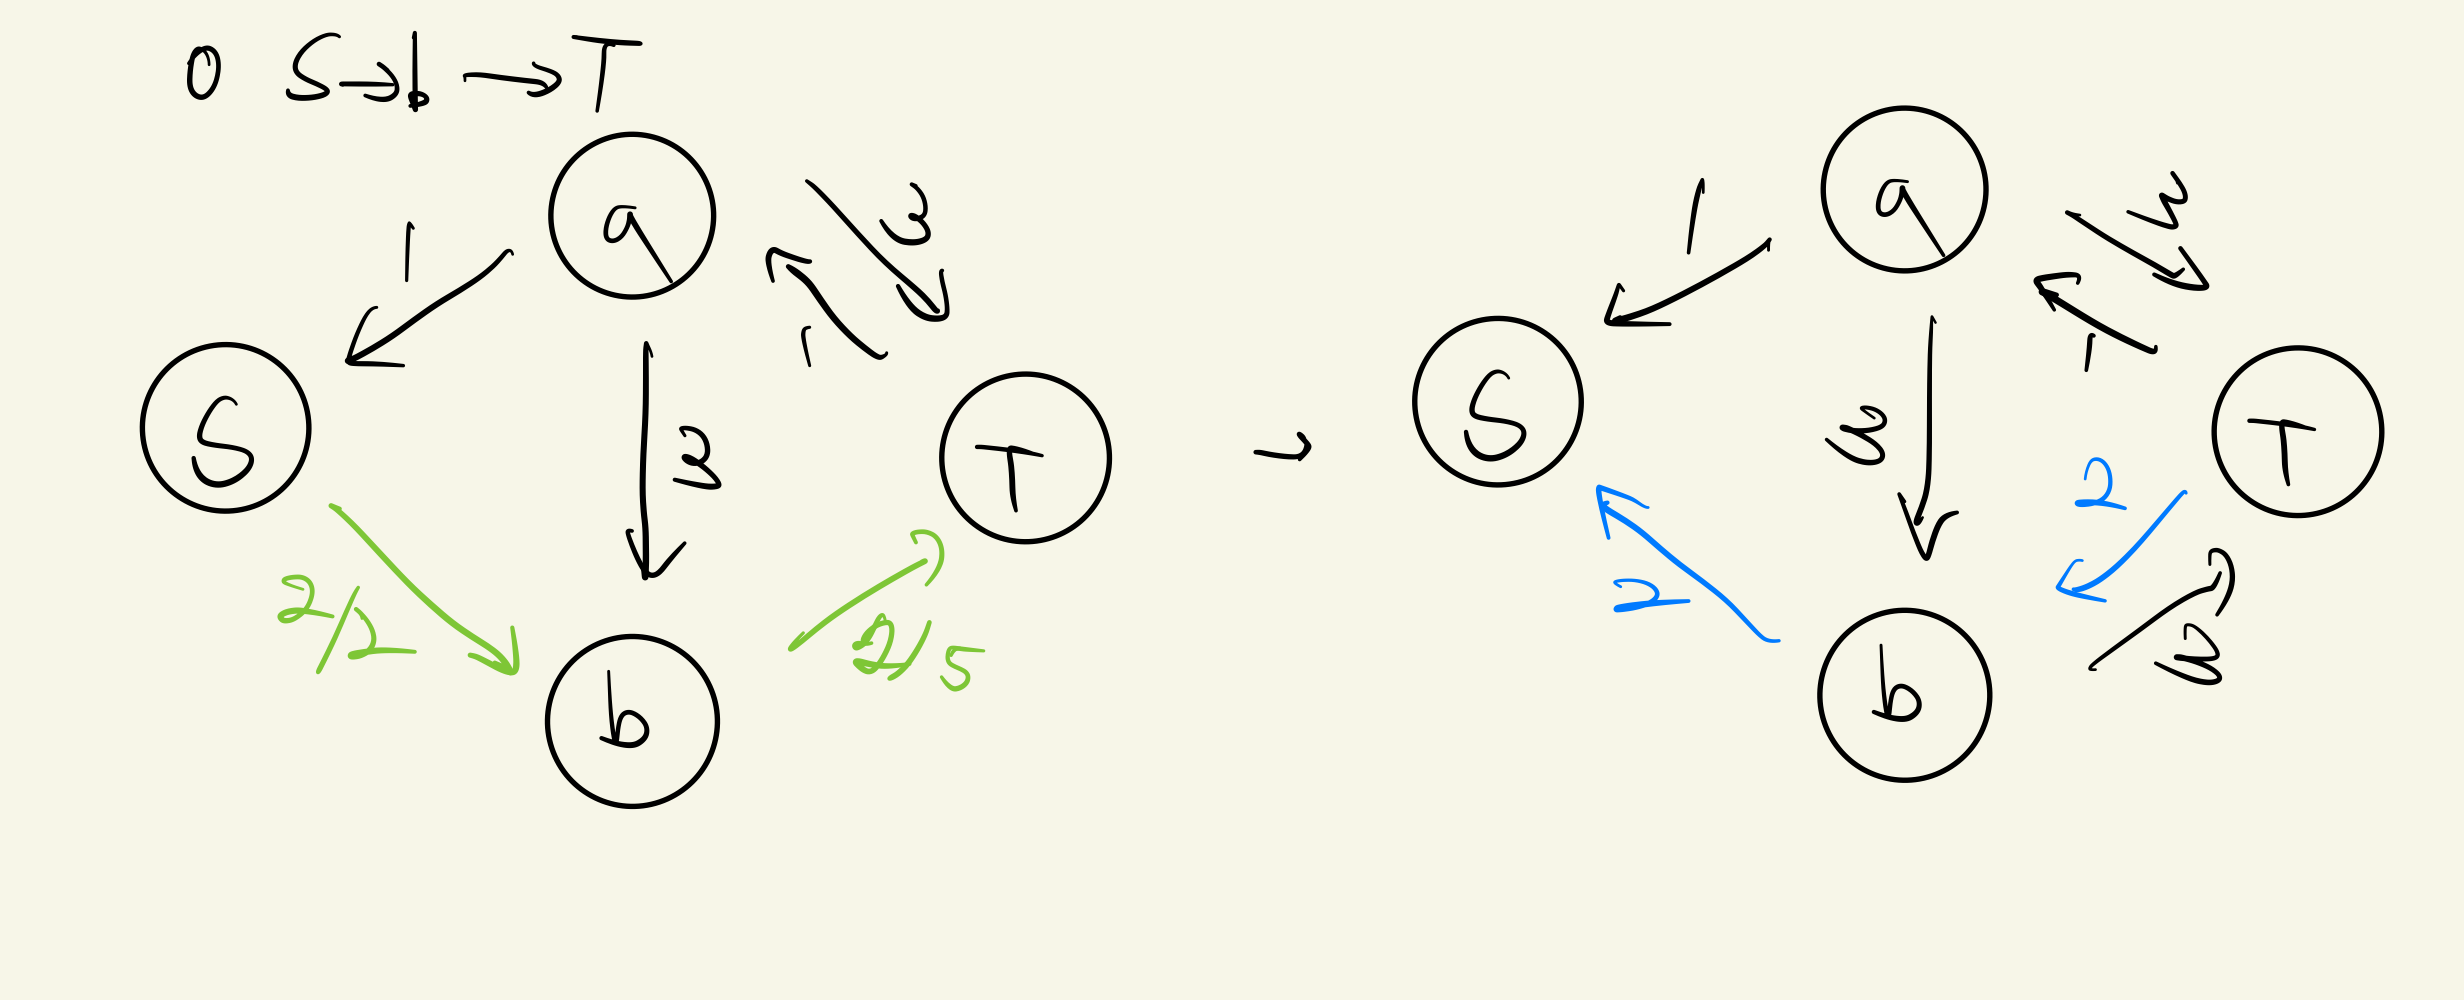 0 S→b → T
a
1
3
1
S
3
T
2/2
2/5
b
→
a
1
3
1
S
3
T
2
2
3
b